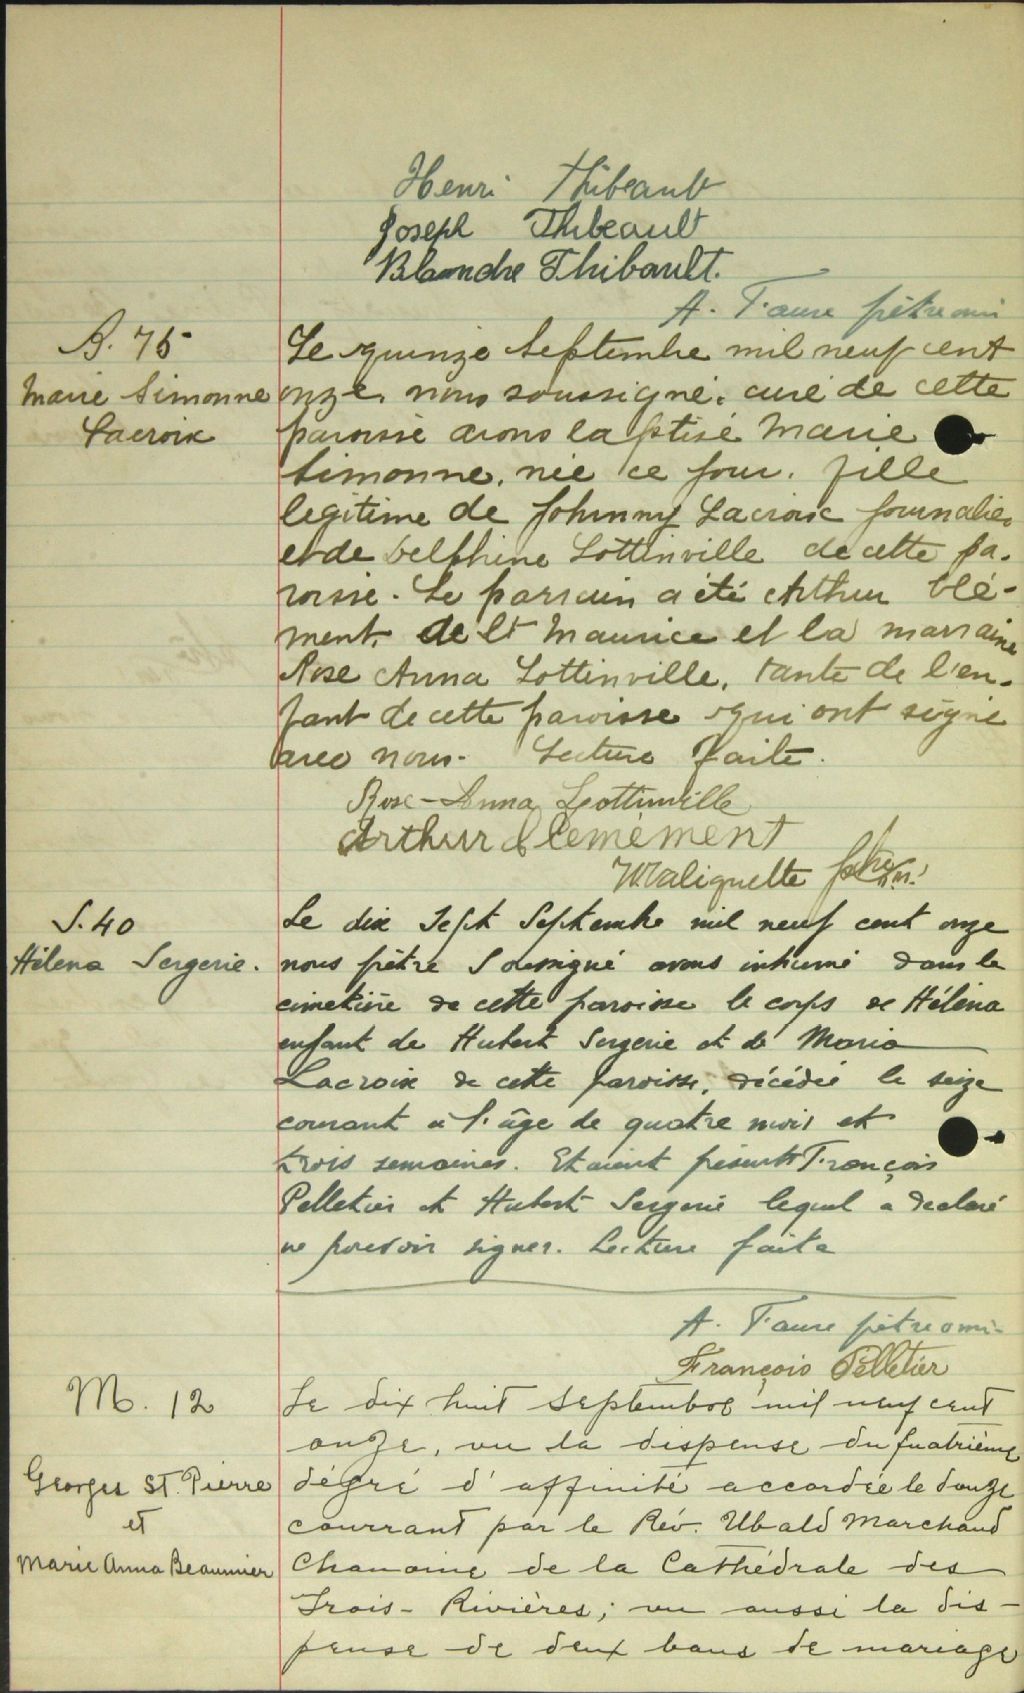 Henri Thibeault
Joseph Thibeault
Blanche Thibault.
A. Faure ptre omi
B. 75
Marie Simonne
Lacroix
Le quinze Septembre mil neuf cent
onze, nous soussigné, curé de cette
paroisse avons baptisé Marie
Simonne, née ce jour, fille
legitime de Johnny Lacroix journalier
et de Delphine Lottinville de cette pa-
roisse. Le parrain a été Arthur Clé-
ment, de St Maurice et la marraine
Rose Anna Lottinville, tante de l'en-
fant de cette paroisse qui ont signé
avec nous. Lecture faite.
Rose-Anna Lottinville
Arthur Clemèment
Valiquette ptre o.m.i.
S. 40
Hélena Sergerie.
Le dix sept Septembre mil neuf cent onze
nous prêtre Soussigné avons inhumé dans le
cimetière de cette paroisse le corps de Hélèna
enfant de Hubert Sergerie et de Maria
Lacroix de cette paroisse, décédée le seize
courant à l'âge de quatre mois et
trois semaines. Etaient présents François
Pelletier et Hubert Sergerie lequel a declaré
ne pouvoir signer. Lecture faite
A. Faure ptre omi
François Pelletier
M. 12
Georges St. Pierre
et
Marie Anna Beaumier
Le dix huit septembre mil neuf cent
onze, vu la dispense du quatrième
dégré d'affinité accordée le douze
courrant par le Rév. Ubald Marchand
Chanoine de la Cathédrale des
Trois-Rivières; vu aussi la dis-
pense de deux bans de mariage